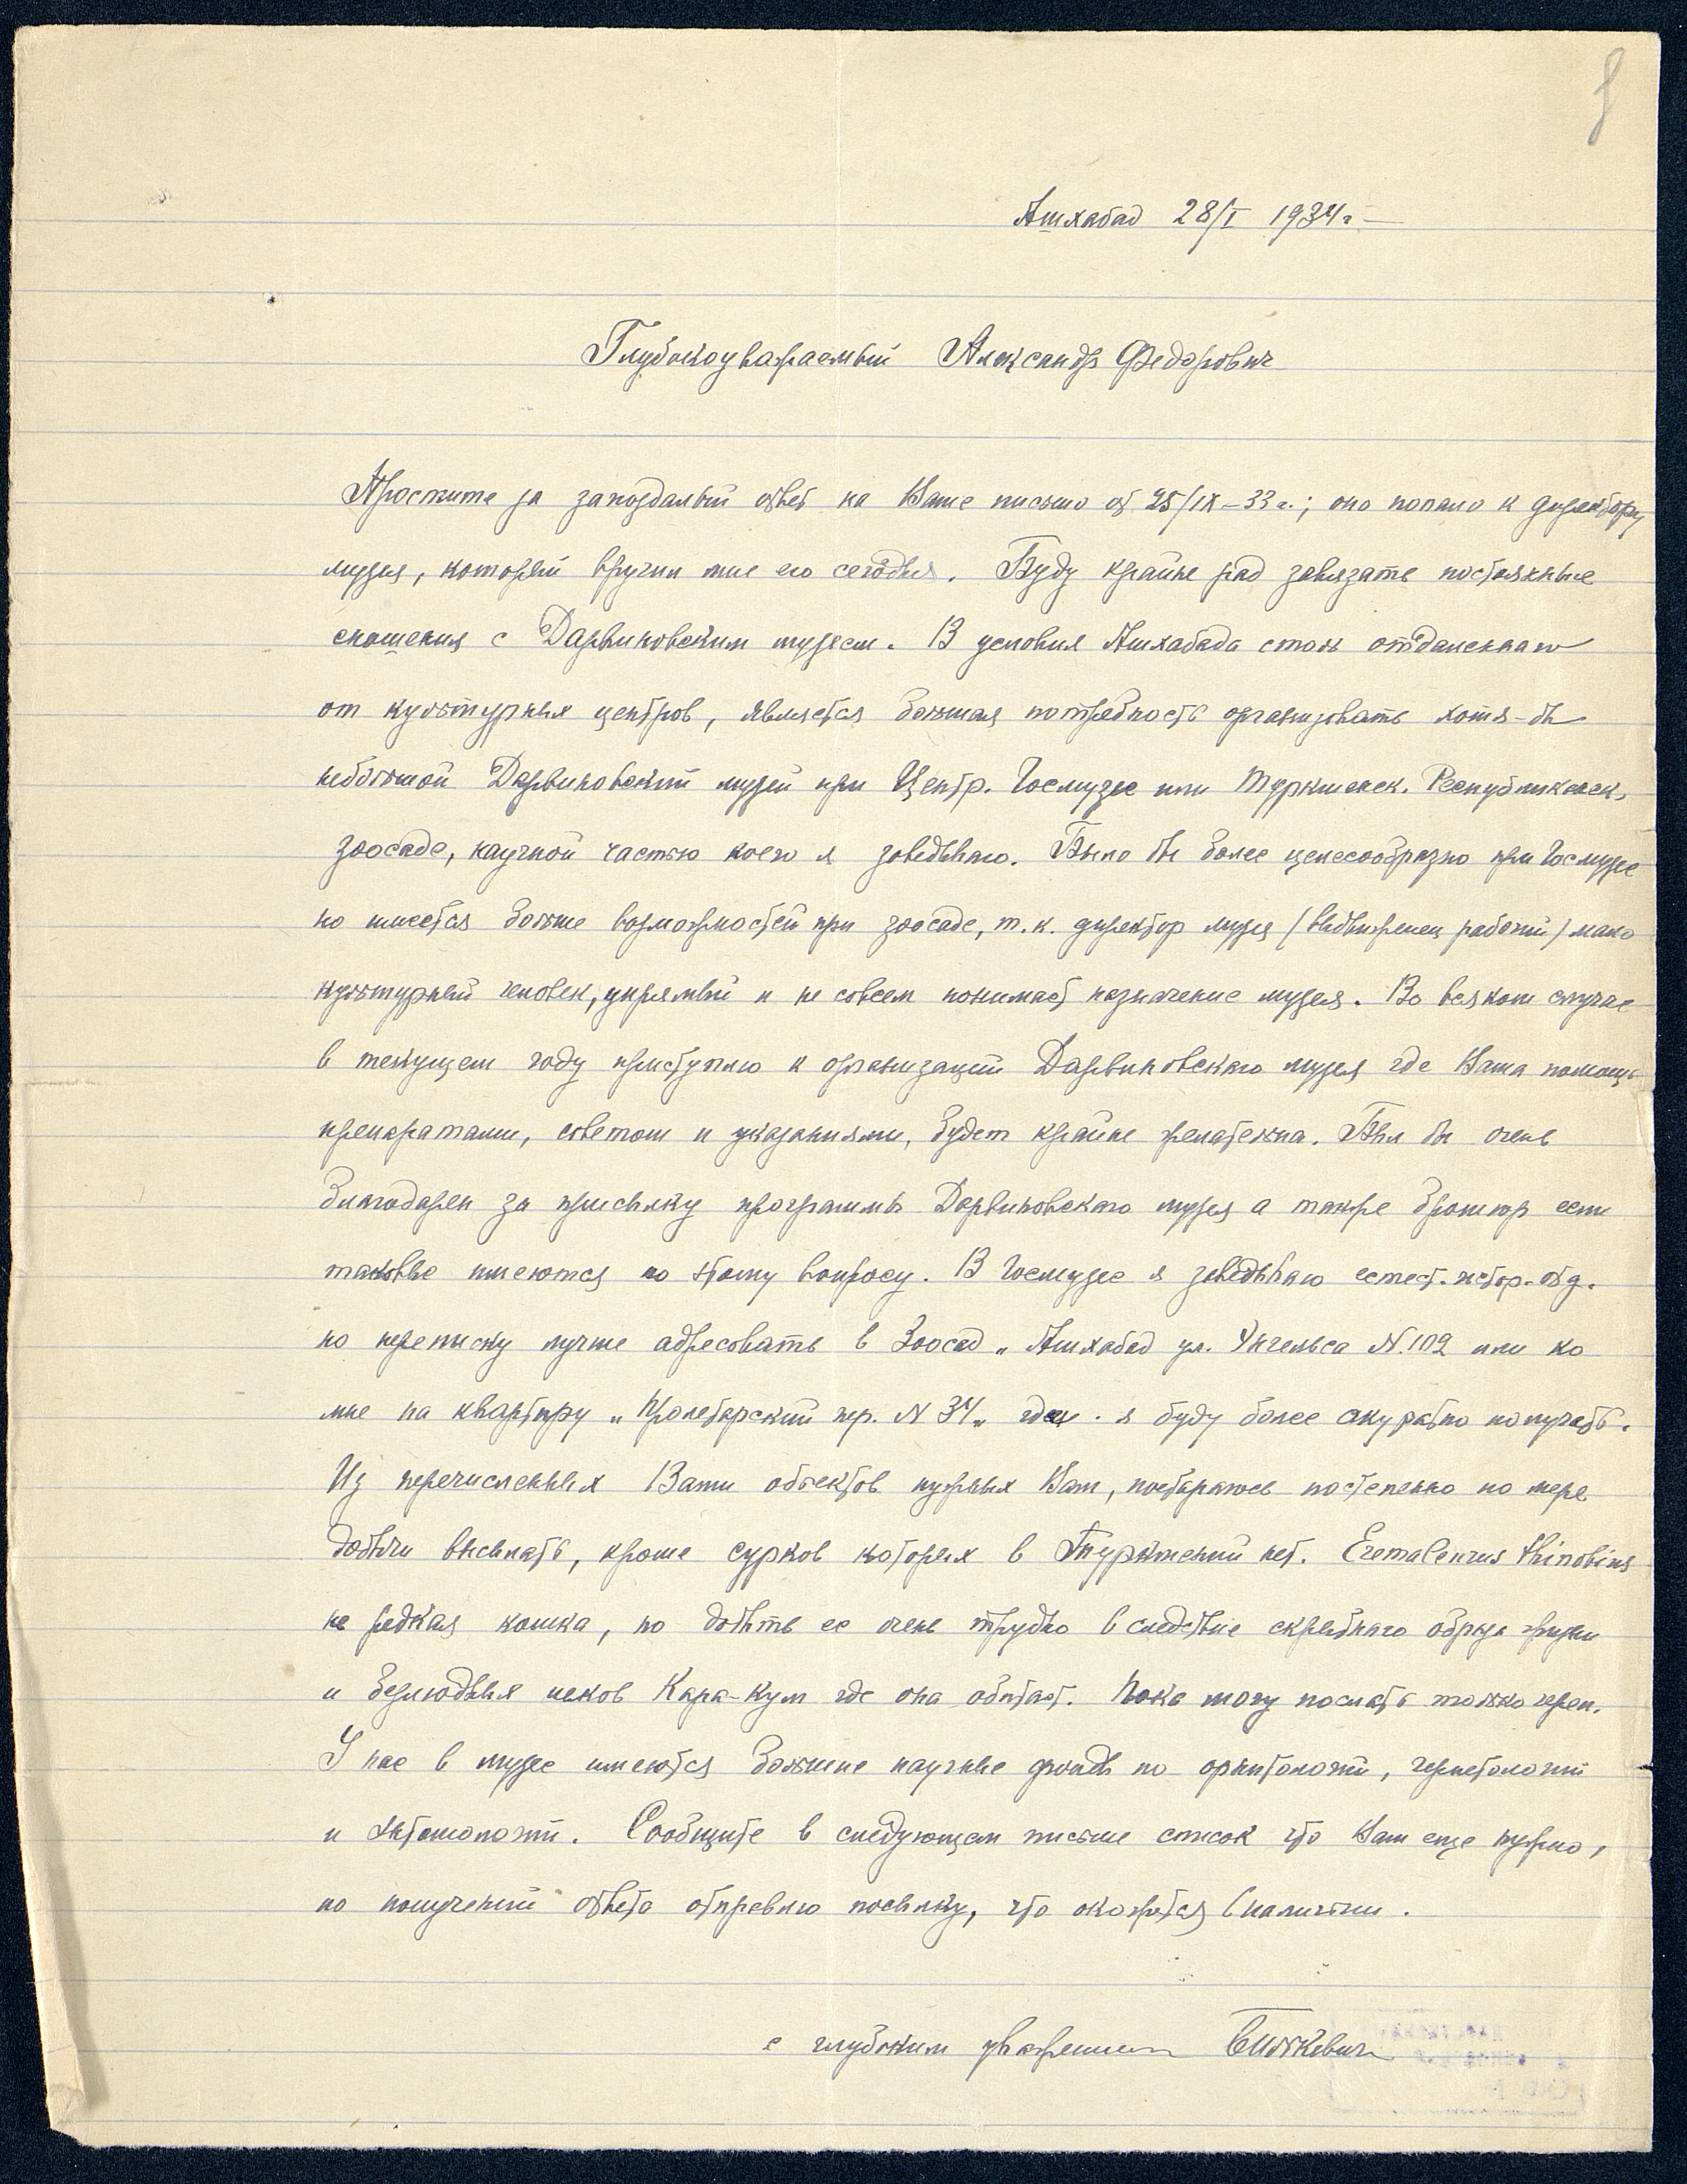 Ашхабад 28/I 1934 г.
Глубокоуважаемый Александр Федорович
Простите за запоздалый ответ на Ваше письмо от 25/IX–33 г.; оно попало к директору
музея, который вручил мне его сегодня. Буду крайне рад завязать постоянные
сношения с Дарвиновским музеем. В условия Ашхабада столь отдаленнаго
от культурных центров, является большая потребность организовать хотя-бы
небольшой Дарвиновский музей при Центр. Госмузее или Туркменск. Республиканск.
зоосаде, научной частью коего я заведываю. Было бы более целесообразно при Госмузее
но имеется больше возможностей при зоосаде, т.к. директор музея (выдвиженец рабочий) мало
культурный человек, упрямый и не совсем понимает назначение музея. Во всяком случае
в текущем году приступлю к организации Дарвиновскаго музея где Ваша помощь
препаратами, советом и указаниями, будет крайне желательна. Был бы очень
благодарен за присылку программы Дарвиновскаго музея а также брошюр если
таковые имеются по этому вопросу. В Госмузее я заведываю естест.-истор. отд.
но переписку лучше адресовать в Зоосад „Ашхабад ул. Энгельса N. 102 или ко
мне на квартиру „Пролетарский пер. N 34„ где я буду более акуратно получать.
Из перечисленных Вами объектов нужных Вам, постараюсь постепенно по мере
добычи высылать, кроме сурков которых в Туркмении нет. Eremaelurus thinobius
не редкая кошка, но добыть ее очень трудно вследствие скрытнаго образа жизни
и безлюдных песков Кара-Кум где она обитает. Пока могу послать только череп.
У нас в музее имеются большие научные фонды по орнитологии, герпетологии
и энтомологии. Сообщите в следующем письме список что Вам еще нужно,
по получении ответа отправлю посылку, что окажется в наличии.
с глубоким уважением Билькевич